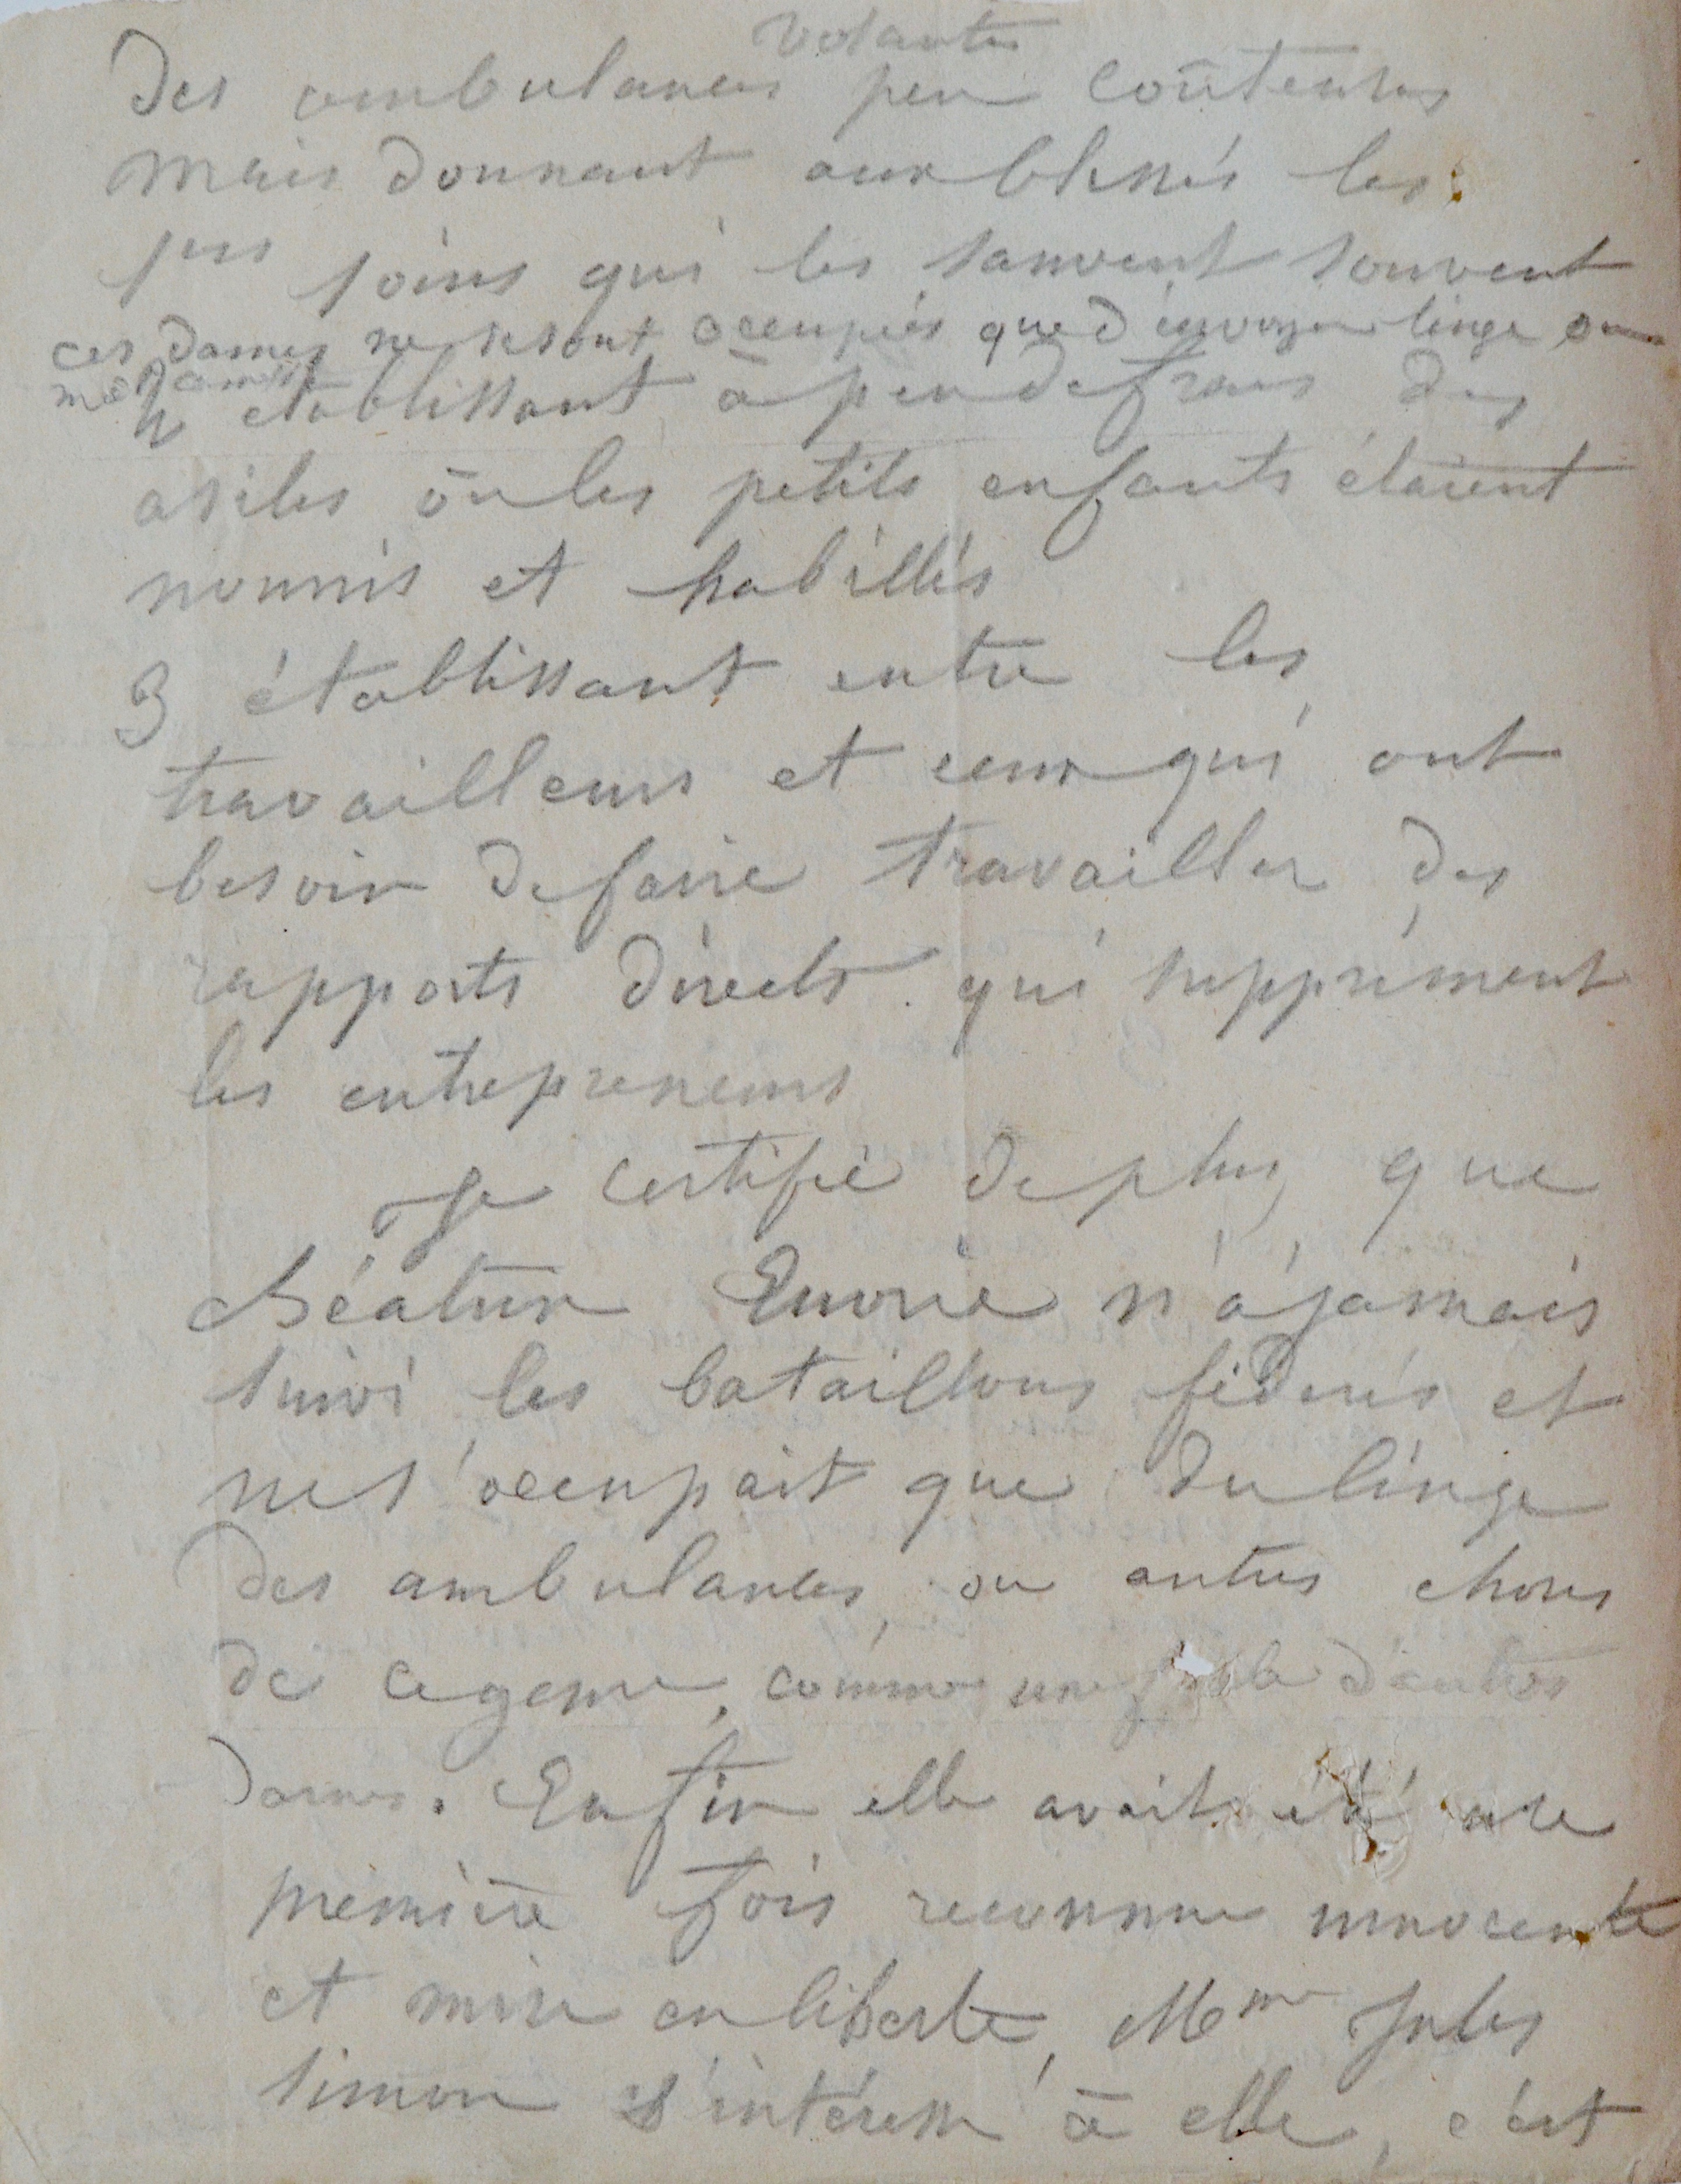 volantes
des ambulances peu coûteuses
mais donnant aux blessés les
1ers soins qui les sauvent souvent
ces dames ne se sont occupées que d'envoyer linge ou
médicaments
2 établissant à peu de frais des
asiles où les petits enfants étaient
nourris et habillés
3 établissant entre les
travailleurs et ceux qui ont
besoin de faire travailler des
rapports directs qui suppriment
les entrepreneurs
Je certifie de plus que
Béatrix Euvrie n'a jamais
suivi les bataillons fédérés et
ne s'occupait que du linge
des ambulances, ou autres choses
de ce genre, comme une foule d'autres
dames. Enfin elle avait été une
première fois reconnue innocente
et mise en liberté, Mme Jules
Simon s'intéresse à elle, c'est